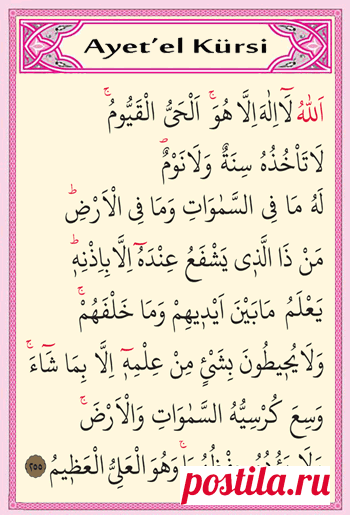 Ayet'el Kürsi
اَللّٰهُ لَٓا اِلٰهَ اِلَّا هُوَۚ اَلْحَيُّ الْقَيُّومُۚ
لَا تَأْخُذُهُ سِنَةٌ وَلَا نَوْمٌۜ
لَهُ مَا فِي السَّمٰوَاتِ وَمَا فِي الْاَرْضِۜ
مَنْ ذَا الَّذ۪ي يَشْفَعُ عِنْدَهُٓ اِلَّا بِاِذْنِه۪ۜ
يَعْلَمُ مَا بَيْنَ اَيْد۪يهِمْ وَمَا خَلْفَهُمْۚ
وَلَا يُح۪يطُونَ بِشَيْءٍ مِنْ عِلْمِه۪ٓ اِلَّا بِمَا شَٓاءَۚ
وَسِعَ كُرْسِيُّهُ السَّمٰوَاتِ وَالْاَرْضَۚ
وَهُوَ الْعَلِيُّ الْعَظ۪يمُ ٢٥٥
postila.ru